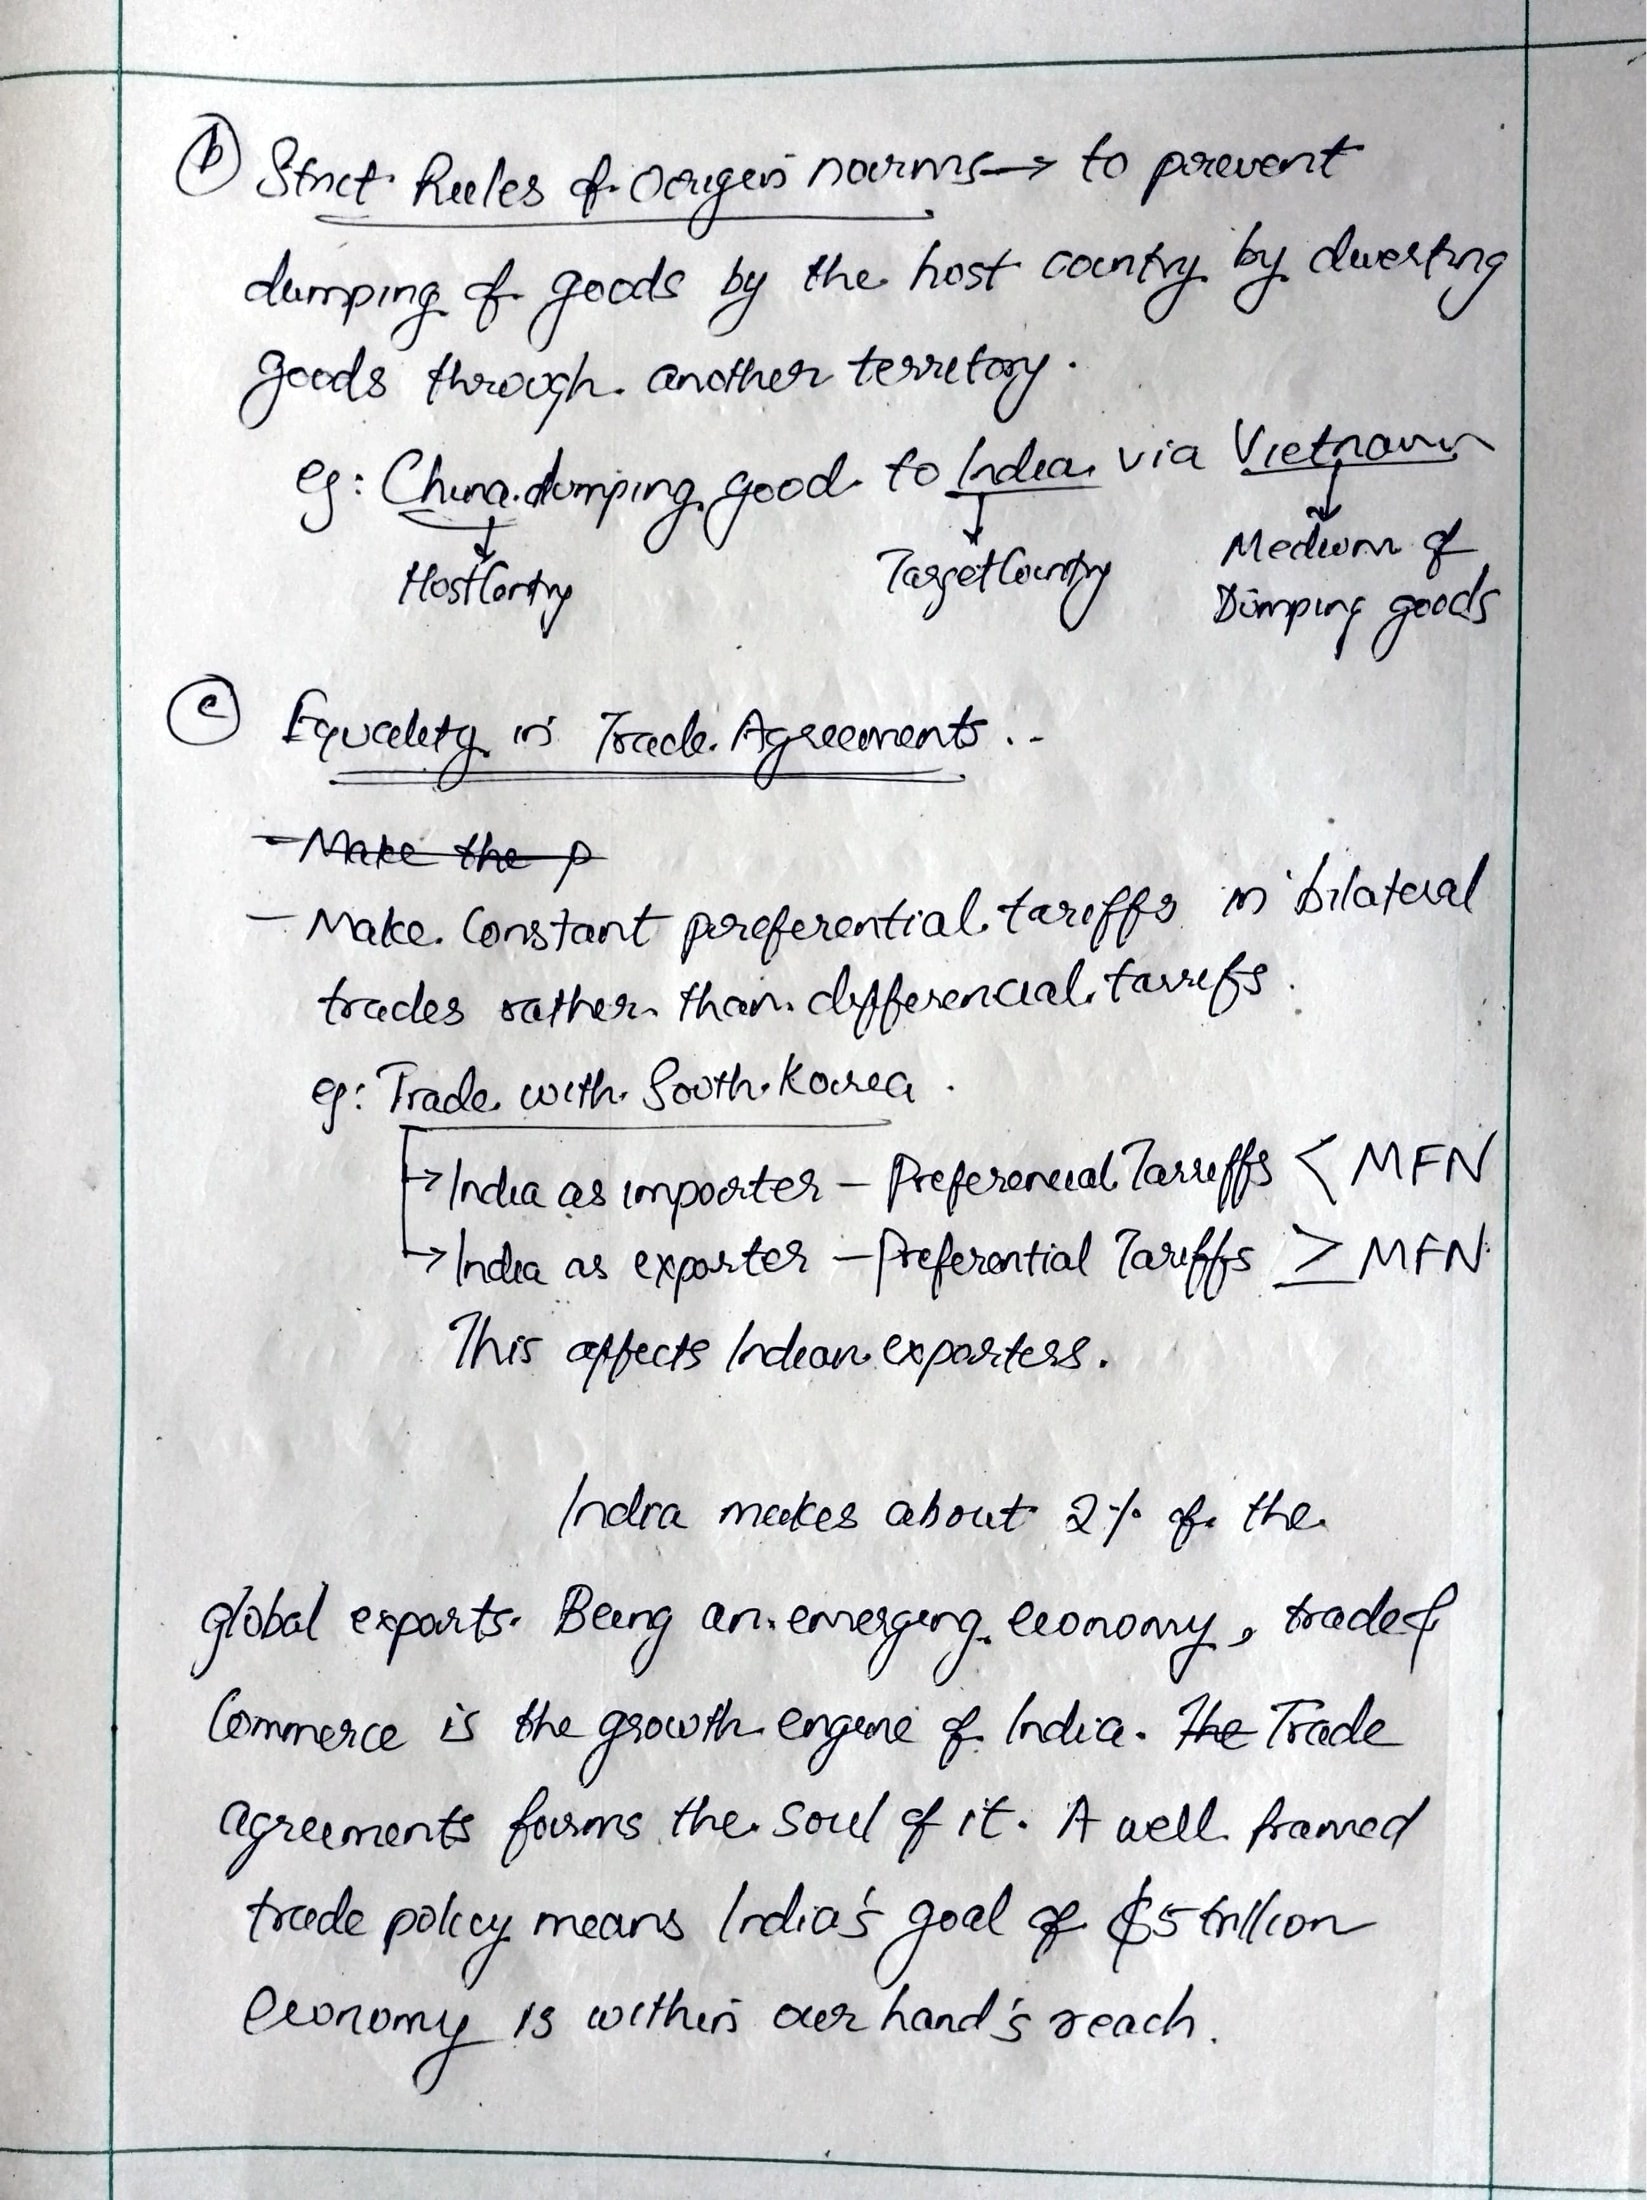 b) Strict Rules of Origin norms → to prevent
dumping of goods by the host country by diverting
goods through another territory.
eg: China dumping good to India via Vietnam
Host Contry Target Country Medium of
Dumping goods
c) Equality in Trade Agreements..-
- Make the p
- Make Constant preferential tariffs in bilateral
trades rather than differencial tarrifs.
eg: Trade with South Korea.
→ India as importer – Preferencial Tarriffs < MFN
→ India as exporter – Preferential Tariffs ≥ MFN.
This affects Indian exporters.
India makes about 2% of the
global exports. Being an emerging economy, trade &
Commerce is the growth engine of India. The Trade
agreements forms the soul of it. A well framed
trade policy means India's goal of $5 trillion
economy is within our hand's reach.